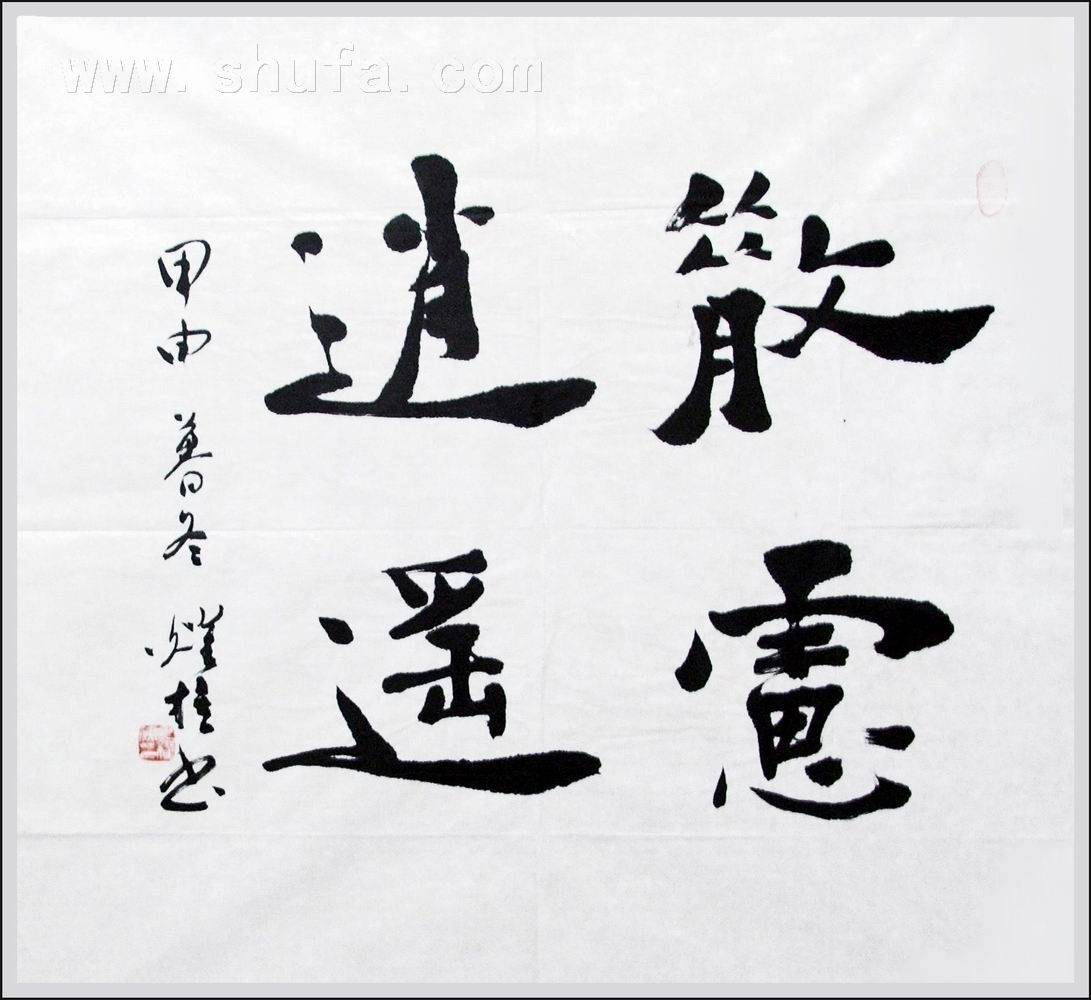 www.shufa.com
散慮
逍遥
甲申暮冬耀桂书